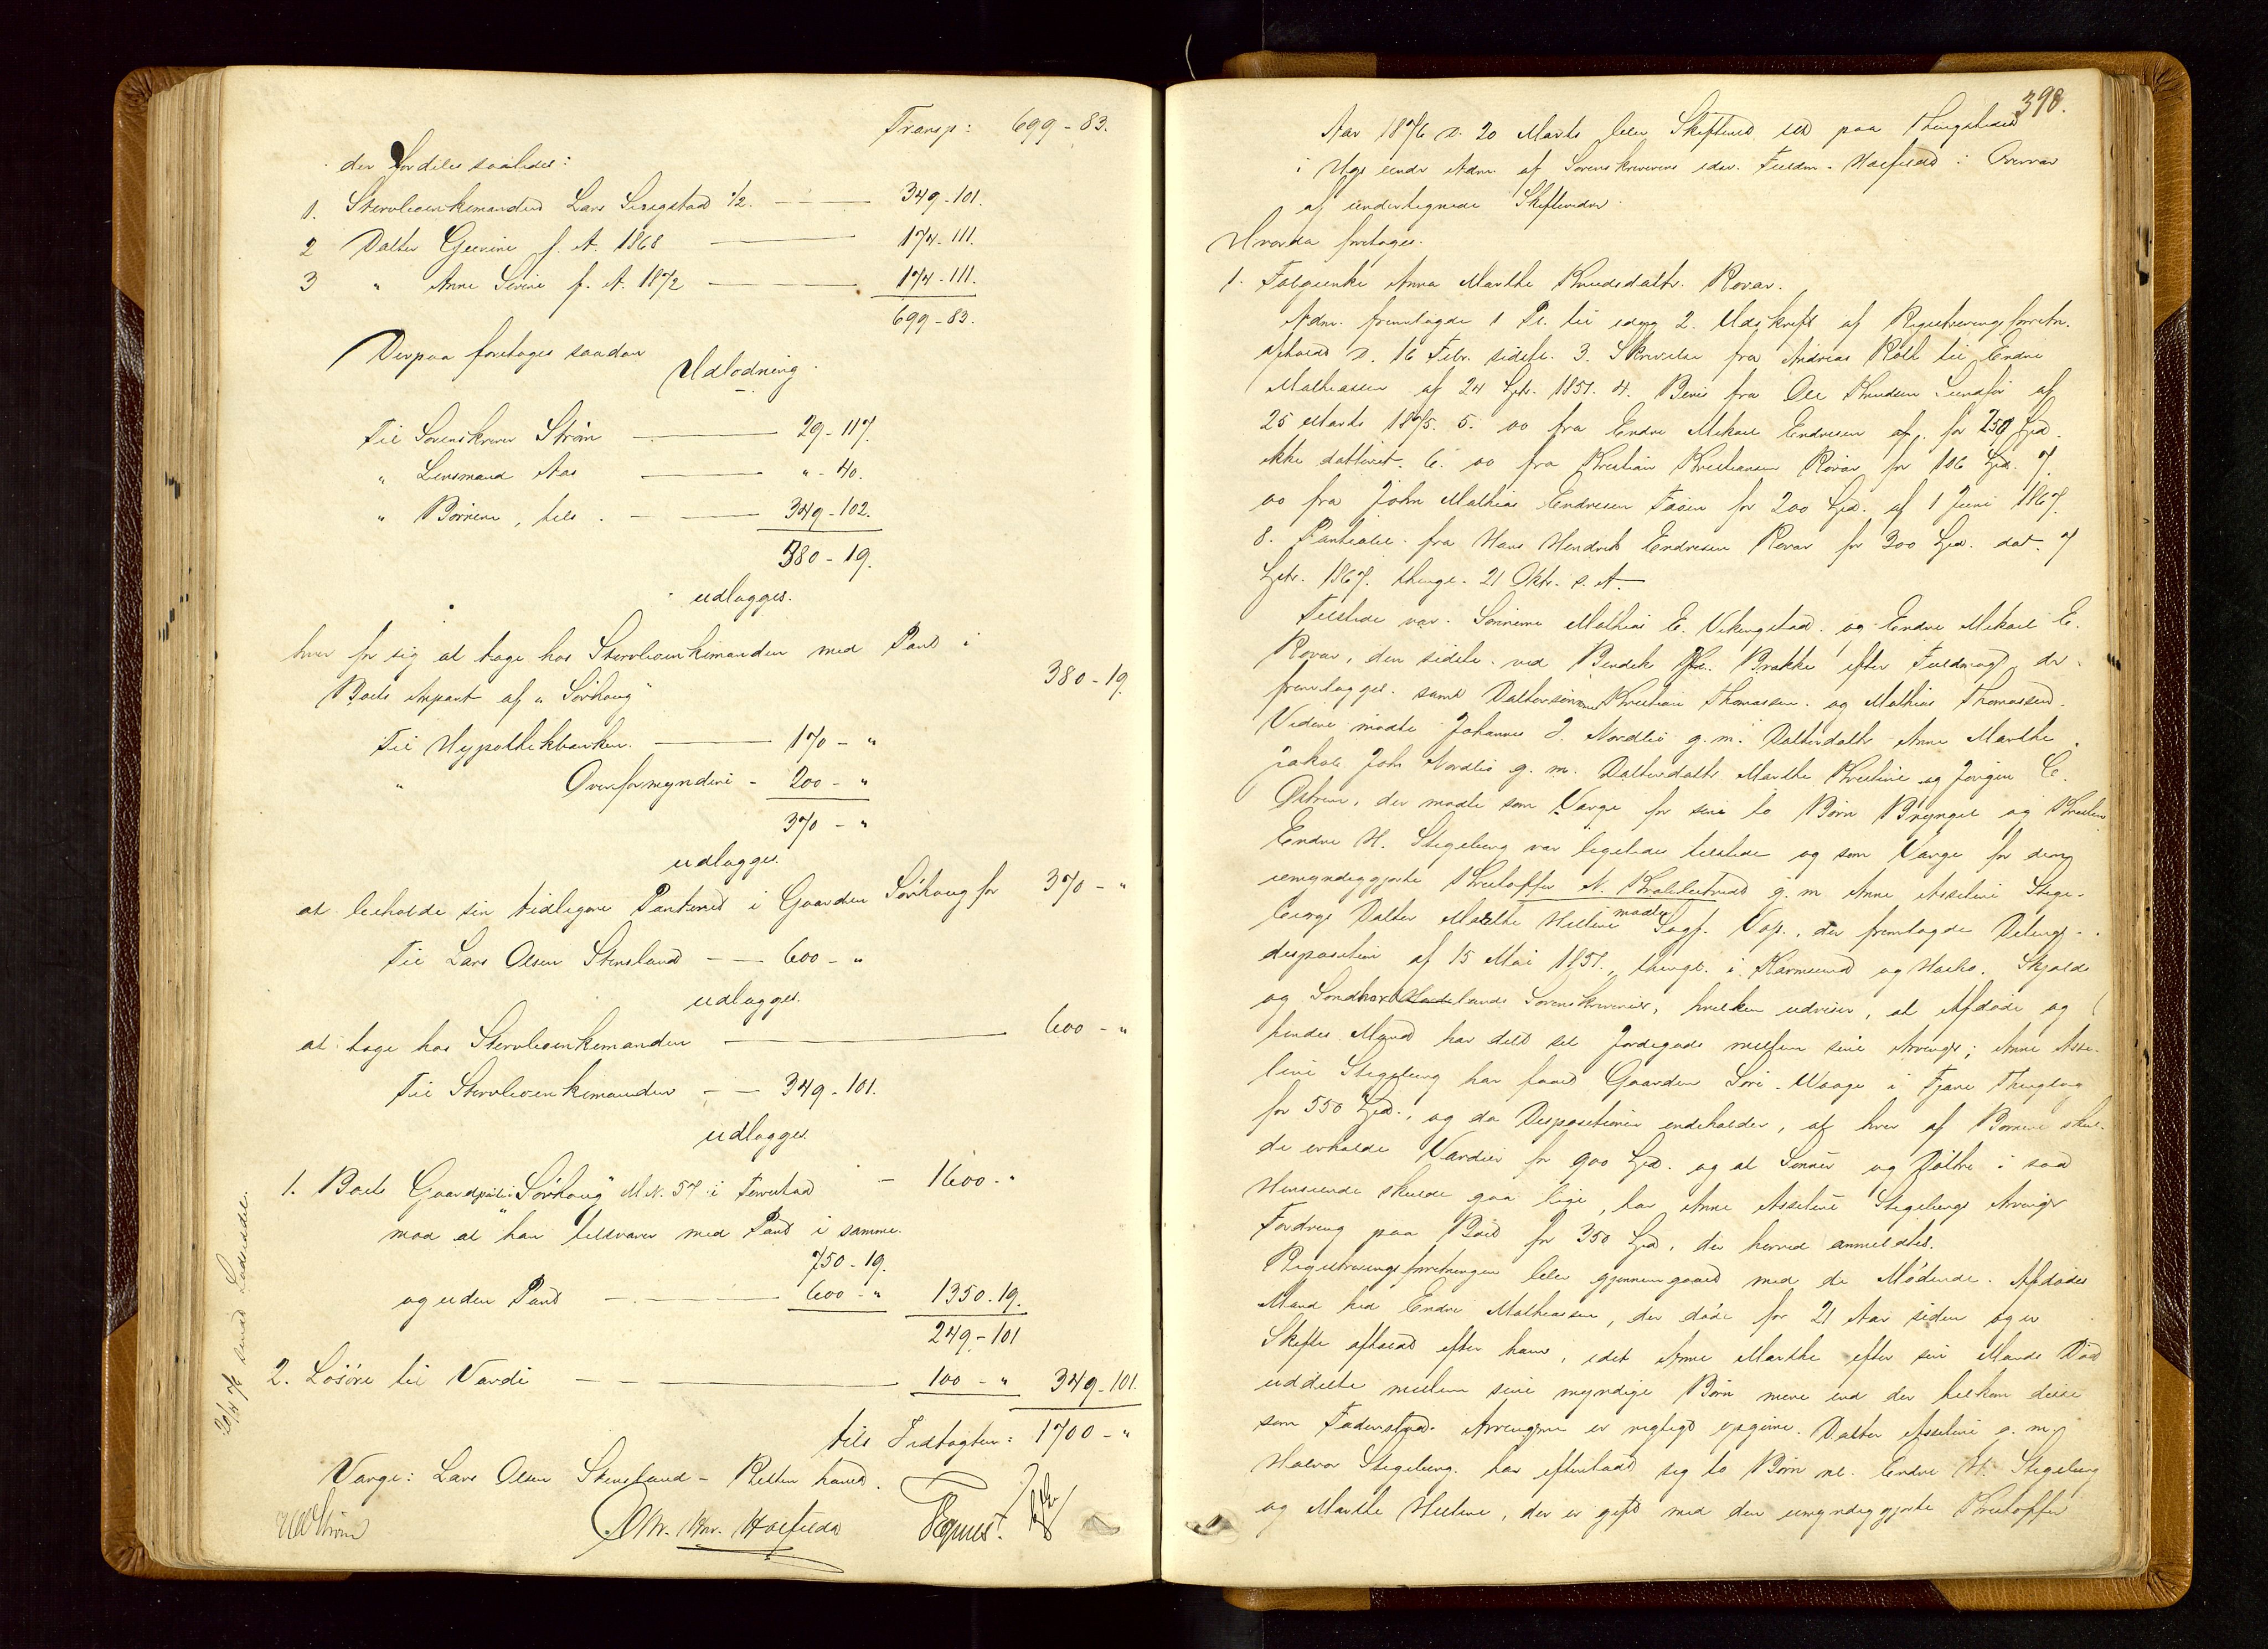 Transp: 699-83.
der fordeles saaledes:
1. Stervboenkemanden Lars ½. 349-101.
2 Datter f. A. 1868 174-111.
3 " Anne Serine f. A. 1872 174-111.
699-83.
Derpaa foretoges saadan
Udlodning.
Til Sorenskriver Strøm 29-117.
" Lensmand Aas " - 40.
" Børnene, tils. 349-102.
380-19.
udlægges.
hver for sig at tage hos Stervboenkemanden med Pant i
Boets Anpart af "Sørhaug" 380-19.
Til Hypothekbanken. 170 - "
" Overformynderi - 200 - "
370 - "
udlægges.
at beholde sin tidligere Panteret i Gaarden Sørhaug for 370 - "
Til Lars Olsen Stensland - 600 - "
udlægges.
at tage hos Stervboenkemanden 600 - "
Til Stervboenkemanden - 349-101.
udlægges.
1. Boets Gaardpart i "Sørhaug" M.N. 57 i - 1600 - "
mod at han tilsvarer med Pant i samme.
750-19.
og uden Pant 600 - " 1350-19.
249-101
2. Løsøre til Værdi 100 - " 349-101.
tils Indtægten: 1700 - "
Værge: Lars Olsen Stensland - Retten hævet.
398.
Aar 1876 d. 20 Marts blev Skifteret sat paa Thingstedet
i under Adm. af Sorenskriverens edsv. Fuldm. i Overvær
af undertegnede Skiftevidner.
Hvorda foretoges.
1. Folgeenke Anna Marthe Knudsdatter. Rovær.
Adm. fremlagde 1 Pr. til idag 2. Udskrift af Registreringsforretn.
afholdt d. 16 Febr. sidstl. 3. Skrivelse fra Andreas til Endre
Mathiassen af 24 Sptr. 1851. 4. Bevis fra Ole Knudsen af
25 Marts 1875. 5. do fra Endre Mikael Endresen for 250 Spd.
ikke datteret. 6. do fra Kristian Kristiansen Rovær for 106 Spd. 7.
do fra John Mathias Endresen for 200 Spd. af 1 Juni 1867.
8. fra Hans Hendrik Endresen Rovær for 300 Spd. dat. 7
Sptr. 1867. thingl. 21 Oktr. s. A.
Tilstede var. Sønnerne Mathias E. Vikingstad. og Endre Mikael E.
Rovær, den sidste. ved Bendik Brække efter Fuldmagt, der
fremlægges. samt Dattersønnerne Kristian Thomassen. og Mathias Thomassen.
Videre mødte Johannes J. Nordbø g. m. Datterdatter Anne Marthe
Jakob Nordbø g. m. Datterdattr. Marthe Kristine og Jørgen C.
der mødte som Værge for sine to Børn og
Endre H. Stegeberg var ligeledes tilstede og som Værge for den
umyndiggjorte Kristoffer N. g. m. Anne Asseline Stege-
bergs Datter Marthe Helene mødte Sagf. der fremlagde Delings-
disposition af 15 Mai 1851. thingl. i Karmsund og Skjolds
og Søndhordlands Sorenskriverier, hvilken udviser, at Afdøde og
hendes Mand har delt sit Jordegods mellem sine Arvinger; Anne Asse-
line Stegeberg har faaet Gaarden Søre-Waage i Thinglag
for 550 Spd., og da Dispositionen indeholder, at hver af Børnene skul-
de erholde Værdier for 900 Spd. og at Sønner og Døttre i saa
Henseende skulde gaa lige, har Anne Asseline Stegebergs Arvinger
Fordring paa Boet for 350 Spd., der herved anmeldtes.
Registreringsforretningen blev gjennemgaaet med de Mødende. Afdødes
Mand hed Endre Mathiassen, der døde for 21 Aar siden og er
Skifte afholdt efter ham, idet Anne Marthe efter sin Mands Død
uddelte mellem sine myndige Børn mere end der tilkom disse
som Fædrenearv. Arvingerne er rigtigt opgivne. Datter Asseline g. m.
Halvor Stegeberg har efterladt sig to Børn nl. Endre H. Stegeberg
og Marthe Helene, der er gift med den umyndiggjorte Kristoffer